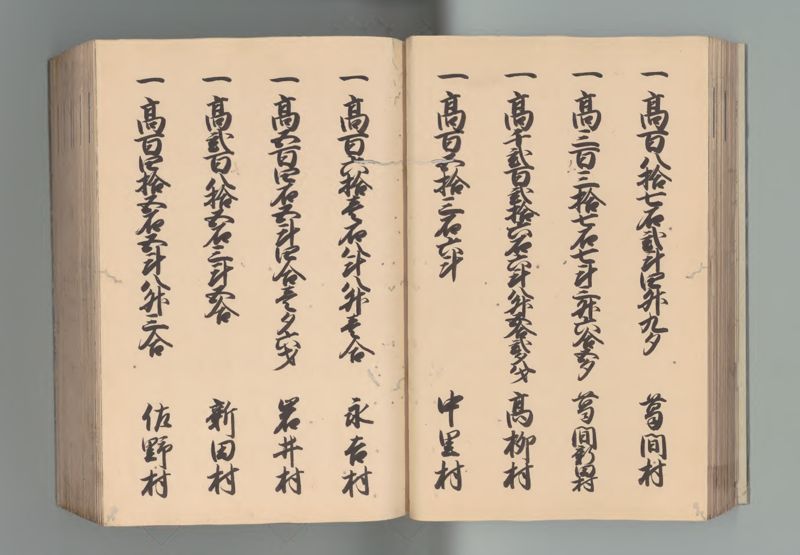 一高百八拾七石弐斗四升九夕 葛間村
一高三百三拾七石七斗三升六合五夕 葛間新田村
一高千弐百弐拾六石六斗八升五合弐夕八才 高柳村
一高百五拾三石六斗 中里村
一高百六拾壱石八斗八升壱合 永吉村
一高五百四石五斗四合壱夕六才 岩井村
一高弐百八拾五石三斗五合 新田村
一高百四拾五石五斗八升三合 佐野村